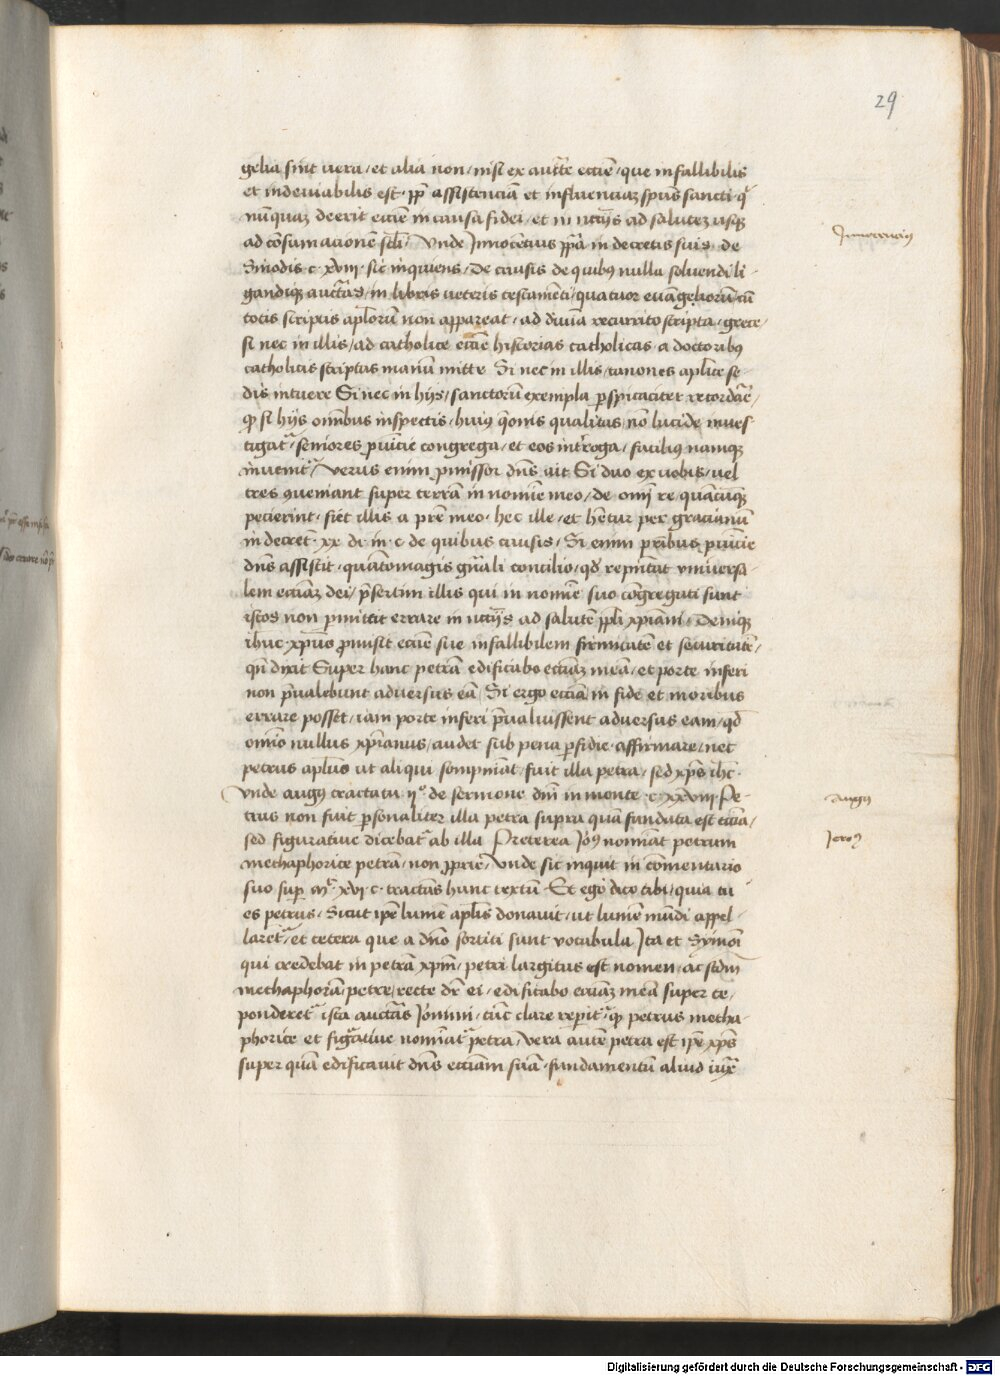 29
gelia sint uera / et alia non / nisi ex auctte eccie / que infallibilis
et indeuiabilis est · ppt assistenciā et influenciaz spūs sancti · q
nūquaz deerit eccie in causa fidei / et in nccijs ad salutez usqz
ad cōsumacionē scli / Unde Innocētius ppa in decretis suis de
Sinodis c · xviij · sic inquiens / De causis de quibus nulla soluendi li-
gandiqz auctās / in libris ueteris testamēti / quatuor euāgeliorū cū
totis scriptis aplorū non appareat / ad diuīa recurrito scripta / grece /
si nec in illis / ad catholice eccīe historias catholicas a doctoribus
catholicis scriptas manū mitte Si nec in illis / canones aplice se-
dis intuere Si nec in hijs / sanctorū exempla pspicaciter recordare /
qp si hijs omībus inspectis / huius qōnis qualitas nō lucide inues-
tigat / seniores puīcie congrega / et eos introga / facilius namqz
inuenit / Verus enim pmissor dns ait Si duo ex uobis / uel
tres queniant super terrā in nomine meo / de omī re quācūqz
pecierint · fiet illis a pre meo · hec ille / et hētur per gracianū
in decret · xx di in c de quibus causis / Si enim pribus puīcie
dns assistit / quātomagis gnali concilio / qd repntat vniuersa-
lem eccīaz dei / psertim illis qui in nomīe suo cōngregati sunt
istos non pmittit errare in nccijs ad salutē ppli xpiani / Deniqz
ihuc · xpus pmisit eccīe sue infallibilem firmitatē et securitatē /
qn dixit Super hanc petrā edificabo eccīaz meā / et porte inferi
non pualebunt aduersus eā Si ergo eccīa in fide et moribus
errare posset / iam porte inferi pualuissent aduersus eam / qd
omīo nullus xpianus / audet sub pena pfidie affirmare / nec
petrus aplus ut aliqui sompniāt / fuit illa petra / sed xps ihc ·
Vnde augus tractatu ijº de sermone dnī in monte · c · xxviij Pe-
trus non fuit psonaliter illa petra supra quā fundata est eccīa /
sed figuratiue dicebat ab illa Preterea Joīus nomīat petrum
methaphorice petrā / non pprie / Unde sic inquit in cōmentario
suo sup mt · xvi · c · tractans hunc textū · Et ego dico tibi / quia tu
es petrus / Sicut ipe lumē aplis donauit / ut lumē mūdi appel-
laret / et cetera que a dno sortiti sunt vocabula Ita et Symoī
qui credebat in petrā xpm / petri largitus est nomen · ac scdm
methaphorā petre / recte dr ei / edificabo eccīaz meā super te /
ponderet ista auctās Jōnimi / tūc clare reperit · qp petrus metha-
phorice et figatiue nomīat petra / vera autē petra est ipe xps
super quā edificauit dns ecciam suā · fundamentū aliud iux
Innocencius
augus
Jeros